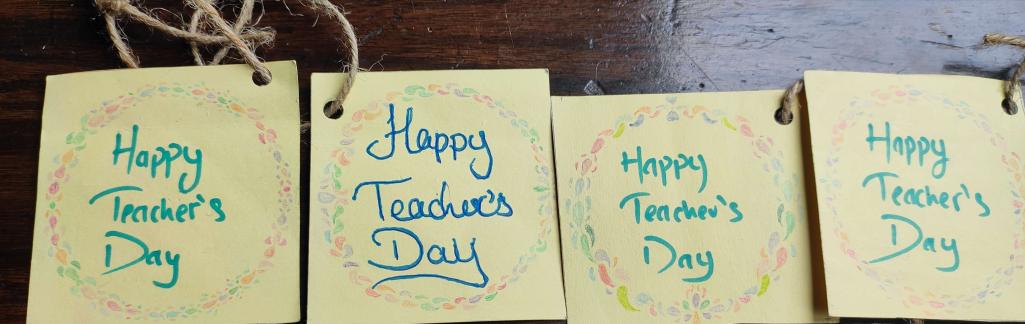 Happy
Teacher's
Day
Happy
Teacher's
Day
Happy
Teacher's
Day
Happy
Teacher's
Day